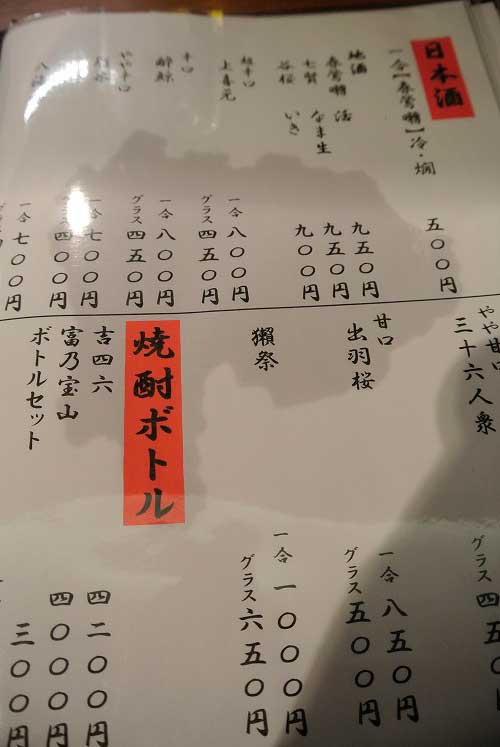 日本酒
一合【春鶯囀】冷・燗
五〇〇円
地酒
春鶯囀 活
九五〇円
七賢 なま生
九五〇円
谷桜 いき
九〇〇円
超辛口
上喜元
一合 八〇〇円
グラス 四五〇円
辛口
酔鯨
一合 八〇〇円
グラス 四五〇円
やや辛口
一合 七〇〇円
四〇〇円
一合 七〇〇円
やや甘口
三十六人衆
グラス 四五〇
甘口
出羽桜
一合 八五〇円
グラス 五〇〇円
獺祭
一合 一〇〇〇円
グラス 六五〇円
焼酎ボトル
吉四六
四二〇〇円
富乃宝山
四〇〇〇円
ボトルセット
三〇〇円